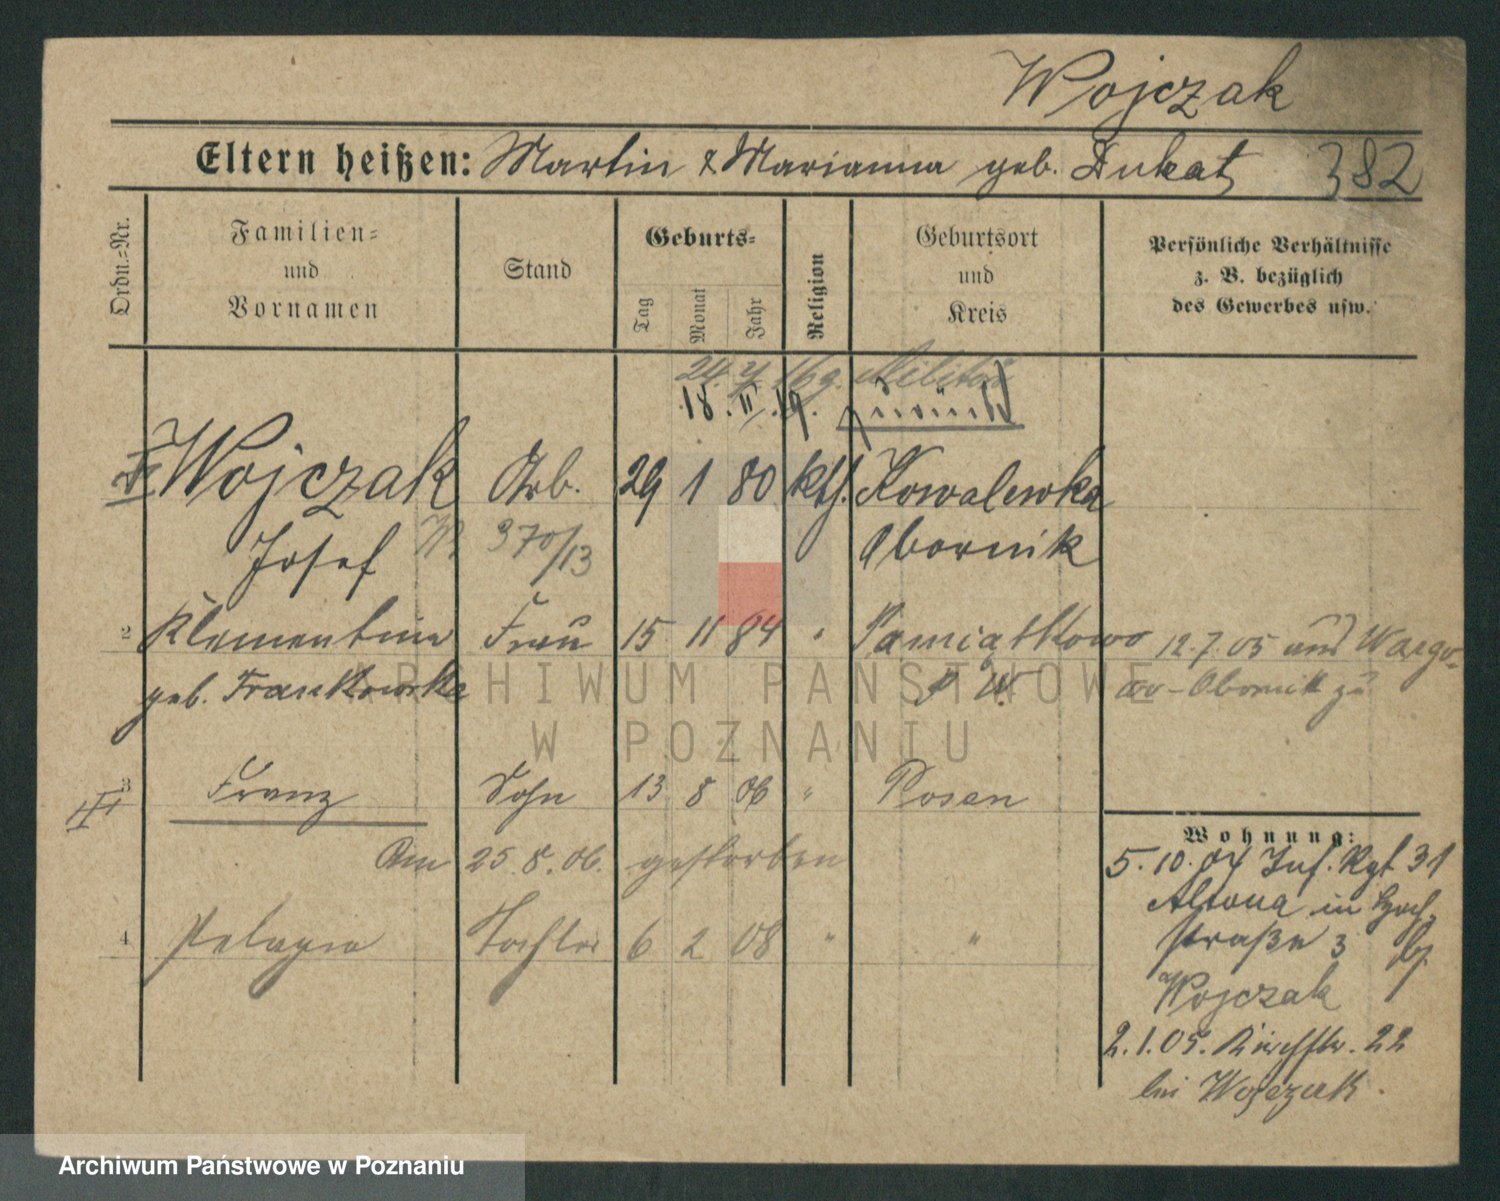 Wojczak
Eltern heißen: Martin & Marianna geb. Dukat 382
Ordn.-Nr.
Familien- und Vornamen
Stand
Geburts-
Tag
Monat
Jahr
Religion
Geburtsort und Kreis
Persönliche Verhältnisse
z. B. bezüglich
des Gewerbes usw.
24. 7. 16 z. Militär
18. II. 19. zurück
Wojczak Arb. 29 1 80 kth. Kowalewko
Josef W. 370/13 Obornik
2 Klementine Frau 15 11 84 " Pamiątkowo 12.7.05 aus Wargo-
geb. Frankowska P. W. wo-Obornik zu
3 Franz Sohn 13 8 06 " Posen
Am 25.8.06. gestorben
4 Pelagia Tochter 6 2 08 " "
Wohnung:
5.10.04 Inf. Rgt 31
Altona in Hoch-
straße 3 bj.
Wojczak
2.1.05. Kirchstr. 22
bei Wojczak.
ARCHIWUM PAŃSTWOWE
W POZNANIU
Archiwum Państwowe w Poznaniu